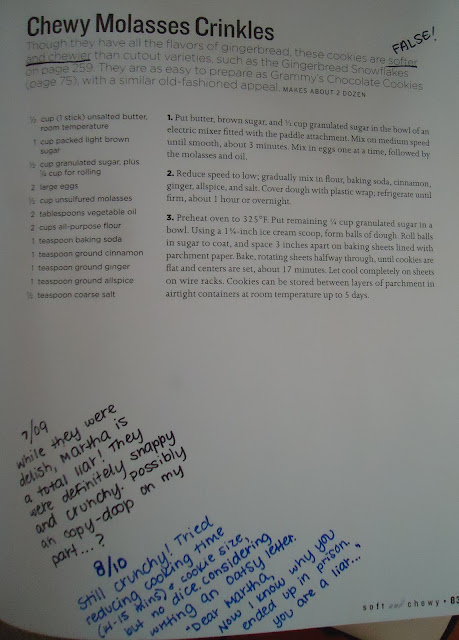 Chewy Molasses Crinkles
Though they have all the flavors of gingerbread, these cookies are softer
and chewier than cutout varieties, such as the Gingerbread Snowflakes
on page 259. They are as easy to prepare as Grammy's Chocolate Cookies
(page 75), with a similar old-fashioned appeal. MAKES ABOUT 2 DOZEN
FALSE!
½ cup (1 stick) unsalted butter,
room temperature
1 cup packed light brown
sugar
½ cup granulated sugar, plus
¼ cup for rolling
2 large eggs
½ cup unsulfured molasses
2 tablespoons vegetable oil
2 cups all-purpose flour
1 teaspoon baking soda
1 teaspoon ground cinnamon
1 teaspoon ground ginger
1 teaspoon ground allspice
½ teaspoon coarse salt
1. Put butter, brown sugar, and ½ cup granulated sugar in the bowl of an
electric mixer fitted with the paddle attachment. Mix on medium speed
until smooth, about 3 minutes. Mix in eggs one at a time, followed by
the molasses and oil.
2. Reduce speed to low; gradually mix in flour, baking soda, cinnamon,
ginger, allspice, and salt. Cover dough with plastic wrap; refrigerate until
firm, about 1 hour or overnight.
3. Preheat oven to 325°F. Put remaining ¼ cup granulated sugar in a
bowl. Using a 1¾-inch ice cream scoop, form balls of dough. Roll balls
in sugar to coat, and space 3 inches apart on baking sheets lined with
parchment paper. Bake, rotating sheets halfway through, until cookies are
flat and centers are set, about 17 minutes. Let cool completely on sheets
on wire racks. Cookies can be stored between layers of parchment in
airtight containers at room temperature up to 5 days.
7/09
while they were
delish, Martha is
a total liar! They
were definitely snappy
and crunchy. Possibly
an oopy-doop on my
part...?
8/10
Still crunchy! Tried
reducing cooking time
(14-15 mins) & cookie size,
but no dice. Considering
writing an oatsy letter.
"Dear Martha,
Now I know why you
ended up in prison.
you are a liar..."
soft and chewy • 83